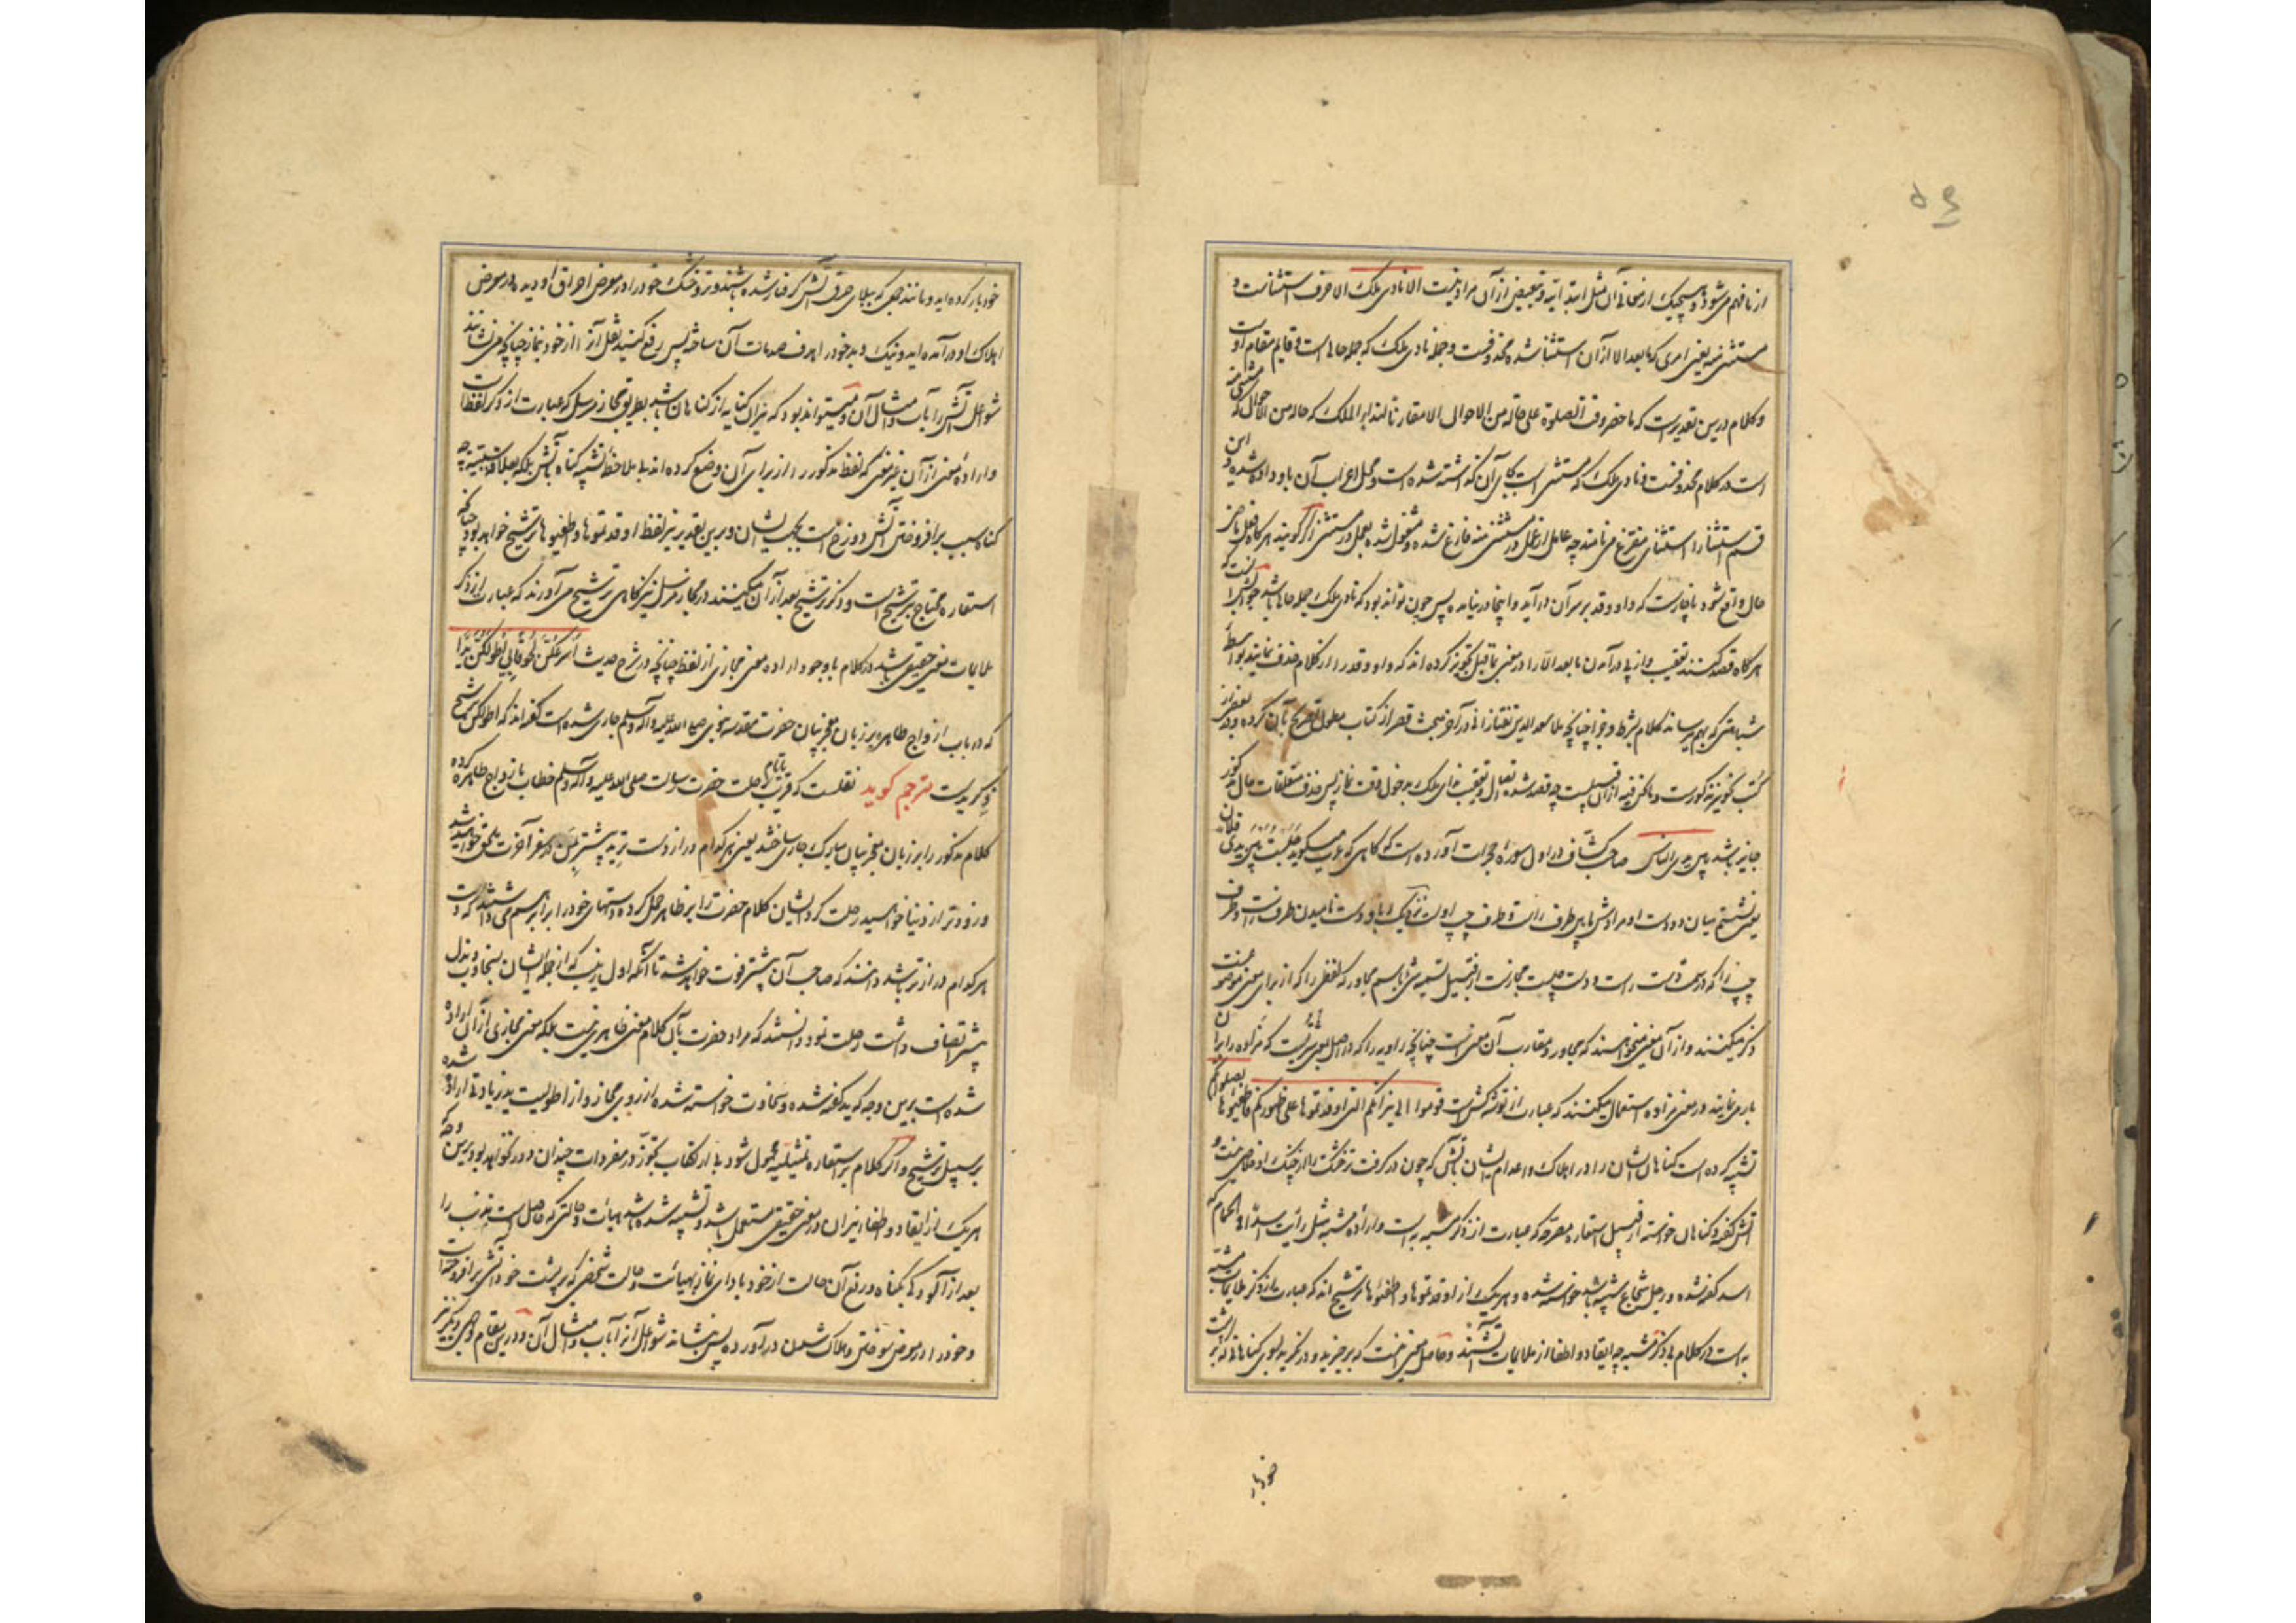 ۵۴
از ما فهم می‌شود و هیچیک از معانی آن مثل ابتدائیه و تبعیض از آن مراد نیست الا نادی ملک الا حرف استثناست و
مستثنی منه یعنی امری که ما بعد الا از آن استثنا شده محذوفست و جمله نادی ملک که جمله حالی است قایم مقام اوست
و کلام درین تقدیر است که ما حضر وقت الصلوة علی حالة من الاحوال الا مقارنا لنداء الملک که حالة من الاحوال که مستثنی منه
است در کلام محذوفست و نادی ملک که مستثنی است بجای آن گذاشته شده است و محل اعراب آن باو داده شده و این
قسم استثنا را استثنای مفرغ می‌نامند چه عامل از عمل در مستثنی منه فارغ شده و مشغول شده بعمل در مستثنی اگر گویند هرگاه فعل ماضی
حال واقع شود ناچار است که واو و قد بر سر آن درآید و اینجا درنیامده پس چون تواند بود که نادی ملک جمله حالیه باشد جوابش آنست که
هرگاه قصد کنند تعقیب و از پی در آمدن ما بعد الا را در معنی بما قبل تجویز کرده‌اند که واو و قد را از کلام حذف نمایند بواسطه
شباهتی که بهم میرساند کلام بشرط و جزا چنانچه ملا سعد الدین تفتازانی در آخر بحث قصر از کتاب مطول تصریح بآن کرده و در بعضی از
کتب نحو نیز مذکورست و ما نحن فیه از آن قبیلست چه قصد شده تعقیب ندای ملک بدخول وقت نماز پس حذف متعلقات حال مذکور
جایز باشد بین یدی الناس صاحب کشاف در اول سوره حجرات آورده است که گاهی که عرب میگوید جلست بین یدی فلان
یعنی نشستم میان دو دست او مرادش مابین طرف راست و طرف چپ اوست نزدیک باو و دست نامیدن طرف راست و طرف
چپ را که در سمت دست راست و دست چپست مجازست از قبیل تسمیه شئ باسم مجاور که لفظی را که از برای معنی موضوعست
ذکر میکنند و از آن معنی میخواهند که مجاور و مقارب آن معنی است چنانچه راویه را که در اصل شتریست که مزاده را بران
بار می‌نمایند در معنی مزاده استعمال میکنند که عبارت از توشه کش است قوموا الی نیرانکم التی اوقدتموها علی ظهورکم فاطفئوها بصلوتکم
تشبیه کرده است گناهان ایشان را در اهلاک و اعدام ایشان بآتش که چون در گرفت تر و خشک را از چنگ او خلاصی نیست و
آتش گفته و گناهان خواسته از قبیل استعاره مصرحه که عبارت از ذکر مشبه به است و اراده مشبه مثل رأیت اسدا فی الحمام که
اسد گفته شده و رجل شجاع مشبه باسد خواسته شده و هر یک از اوقدتموها و اطفئوها ترشیح‌اند که عبارت از ذکر ملایمات مشبه
به است در کلام بی ذکر مشبه چه ایقاد و اطفا از ملایمات آتشند و حاصل معنی آنست که برخیزید و در نگرید بسوی گناهانی که بر پشت
خود بار
خود بار کرده‌اید و مانند جمعی که ببلای حرق آتش گرفتار شده باشند و تر و خشک خود را در معرض احراق او دیده در معرض
اهلاک او در آمده‌اید و نیک و بد خود را هدف صدمات آن ساخته پس رفع کنید ثقل آنرا از خود بنماز چنانچه می‌نشانند
شواعل آتش را بآب و امثال آن و میتواند بود که نیران کنایه از گناهان باشد بطریق مجاز مرسل که عبارت از ذکر لفظ است
و اراده معنی از آن غیر معنی که لفظ مذکور را از برای آن وضع کرده‌اند بی ملاحظه تشبیه گناه بآتش بلکه بعلاقه سببیت چه
گناه سبب برافروختن آتش دوزخ است بجهت ایشان و برین تقدیر نیز لفظ اوقدتموها و اطفئوها ترشیح خواهد بود چنانکه
استعاره محتاج بترشیح است و ذکر ترشیح بعد از آن میکنند در مجاز مرسل نیز گاهی ترشیح می‌آورند که عبارت از ذکر
ملایمات معنی حقیقی باشد در کلام با وجود اراده معنی مجازی از لفظ چنانچه در شرح حدیث اسرعکن لحوقا بی اطولکن یدا
که در باب ازواج طاهره بر زبان معجز بیان حضرت مقدسه نبوی صلی الله علیه و آله و سلم جاری شده است گفته‌اند که اطولکن ترشیح
ذکر ید است مترجم گوید نقلست که قرب بایام رحلت حضرت رسالت صلی الله علیه و آله و سلم خطاب بازواج طاهره کرده
کلام مذکور را بر زبان معجز بیان مبارک جاری ساختند یعنی هر کدام دراز دست ترید پیشتر بمن در سفر آخرت ملحق خواهید شد
و زودتر از دنیا خواهید رحلت کرد ایشان کلام حضرت را بر ظاهر حمل کرده دستهای خود را برابر هم می‌داشتند که دست
هر کدام درازتر باشد دانند که صاحب آن پیشتر فوت خواهد شد تا آنکه اول زینب که از جمله ایشان بسخاوت و بذل
بیشتر اتصاف داشت رحلت نمود دانستند که مراد حضرت بآن کلام معنی ظاهری نیست بلکه معنی مجازی از آن اراده
شده است برین وجه که ید گفته شده و سخاوت خواسته شده از روی مجاز و از اطولیت ید زیادتی اراده شده
بر سبیل ترشیح و اگر کلام بر استعاره تمثیلیه محمول شود با ارتکاب تجوز در مفردات چندان دور نخواهد بود برین وجه که
هر یک از ایقاد و اطفا و نیران در معنی حقیقی مستعمل باشد و تشبیه شده باشد هیأت و حالتی که حاصل است مذنب را
بعد از آلودگی بگناه و رفع آن حالت از خود بادای نماز بهیأت و حالت شخصی که بر پشت خود آتشی برافروخته است
و خود را در معرض سوختن و هلاک شدن در آورده پس بنشاند شواعل آنرا بآب و امثال آن و درین مقام وجهی دیگر نیز